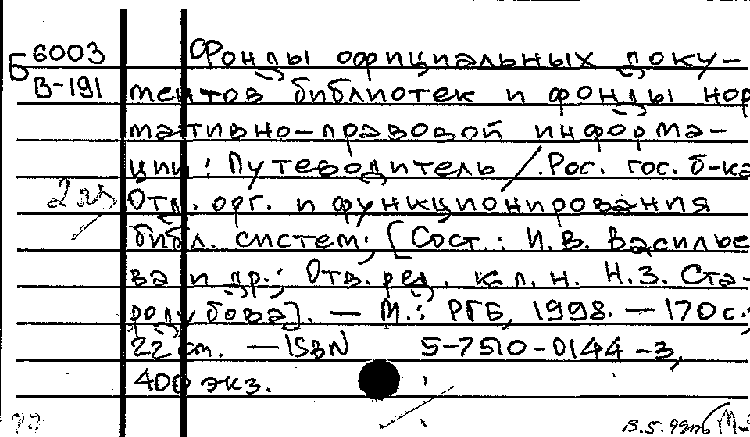 Б 6003 Фонды официальных доку-
В-191 ментов библиотек и фонды нор
мативно-правовой информа-
ции: Путеводитель / Рос. гос. б-ка
2 экз Отд. орг. и функционирования
библ. систем; [Сост.: И. В. Василье
ва и др.; Отв. ред. к.п.н. Н.З. Ста-
родубова]. — М.: РГБ, 1998. — 170 с.;
22 cm. — ISBN 5-7510-0144-3,
400 экз.